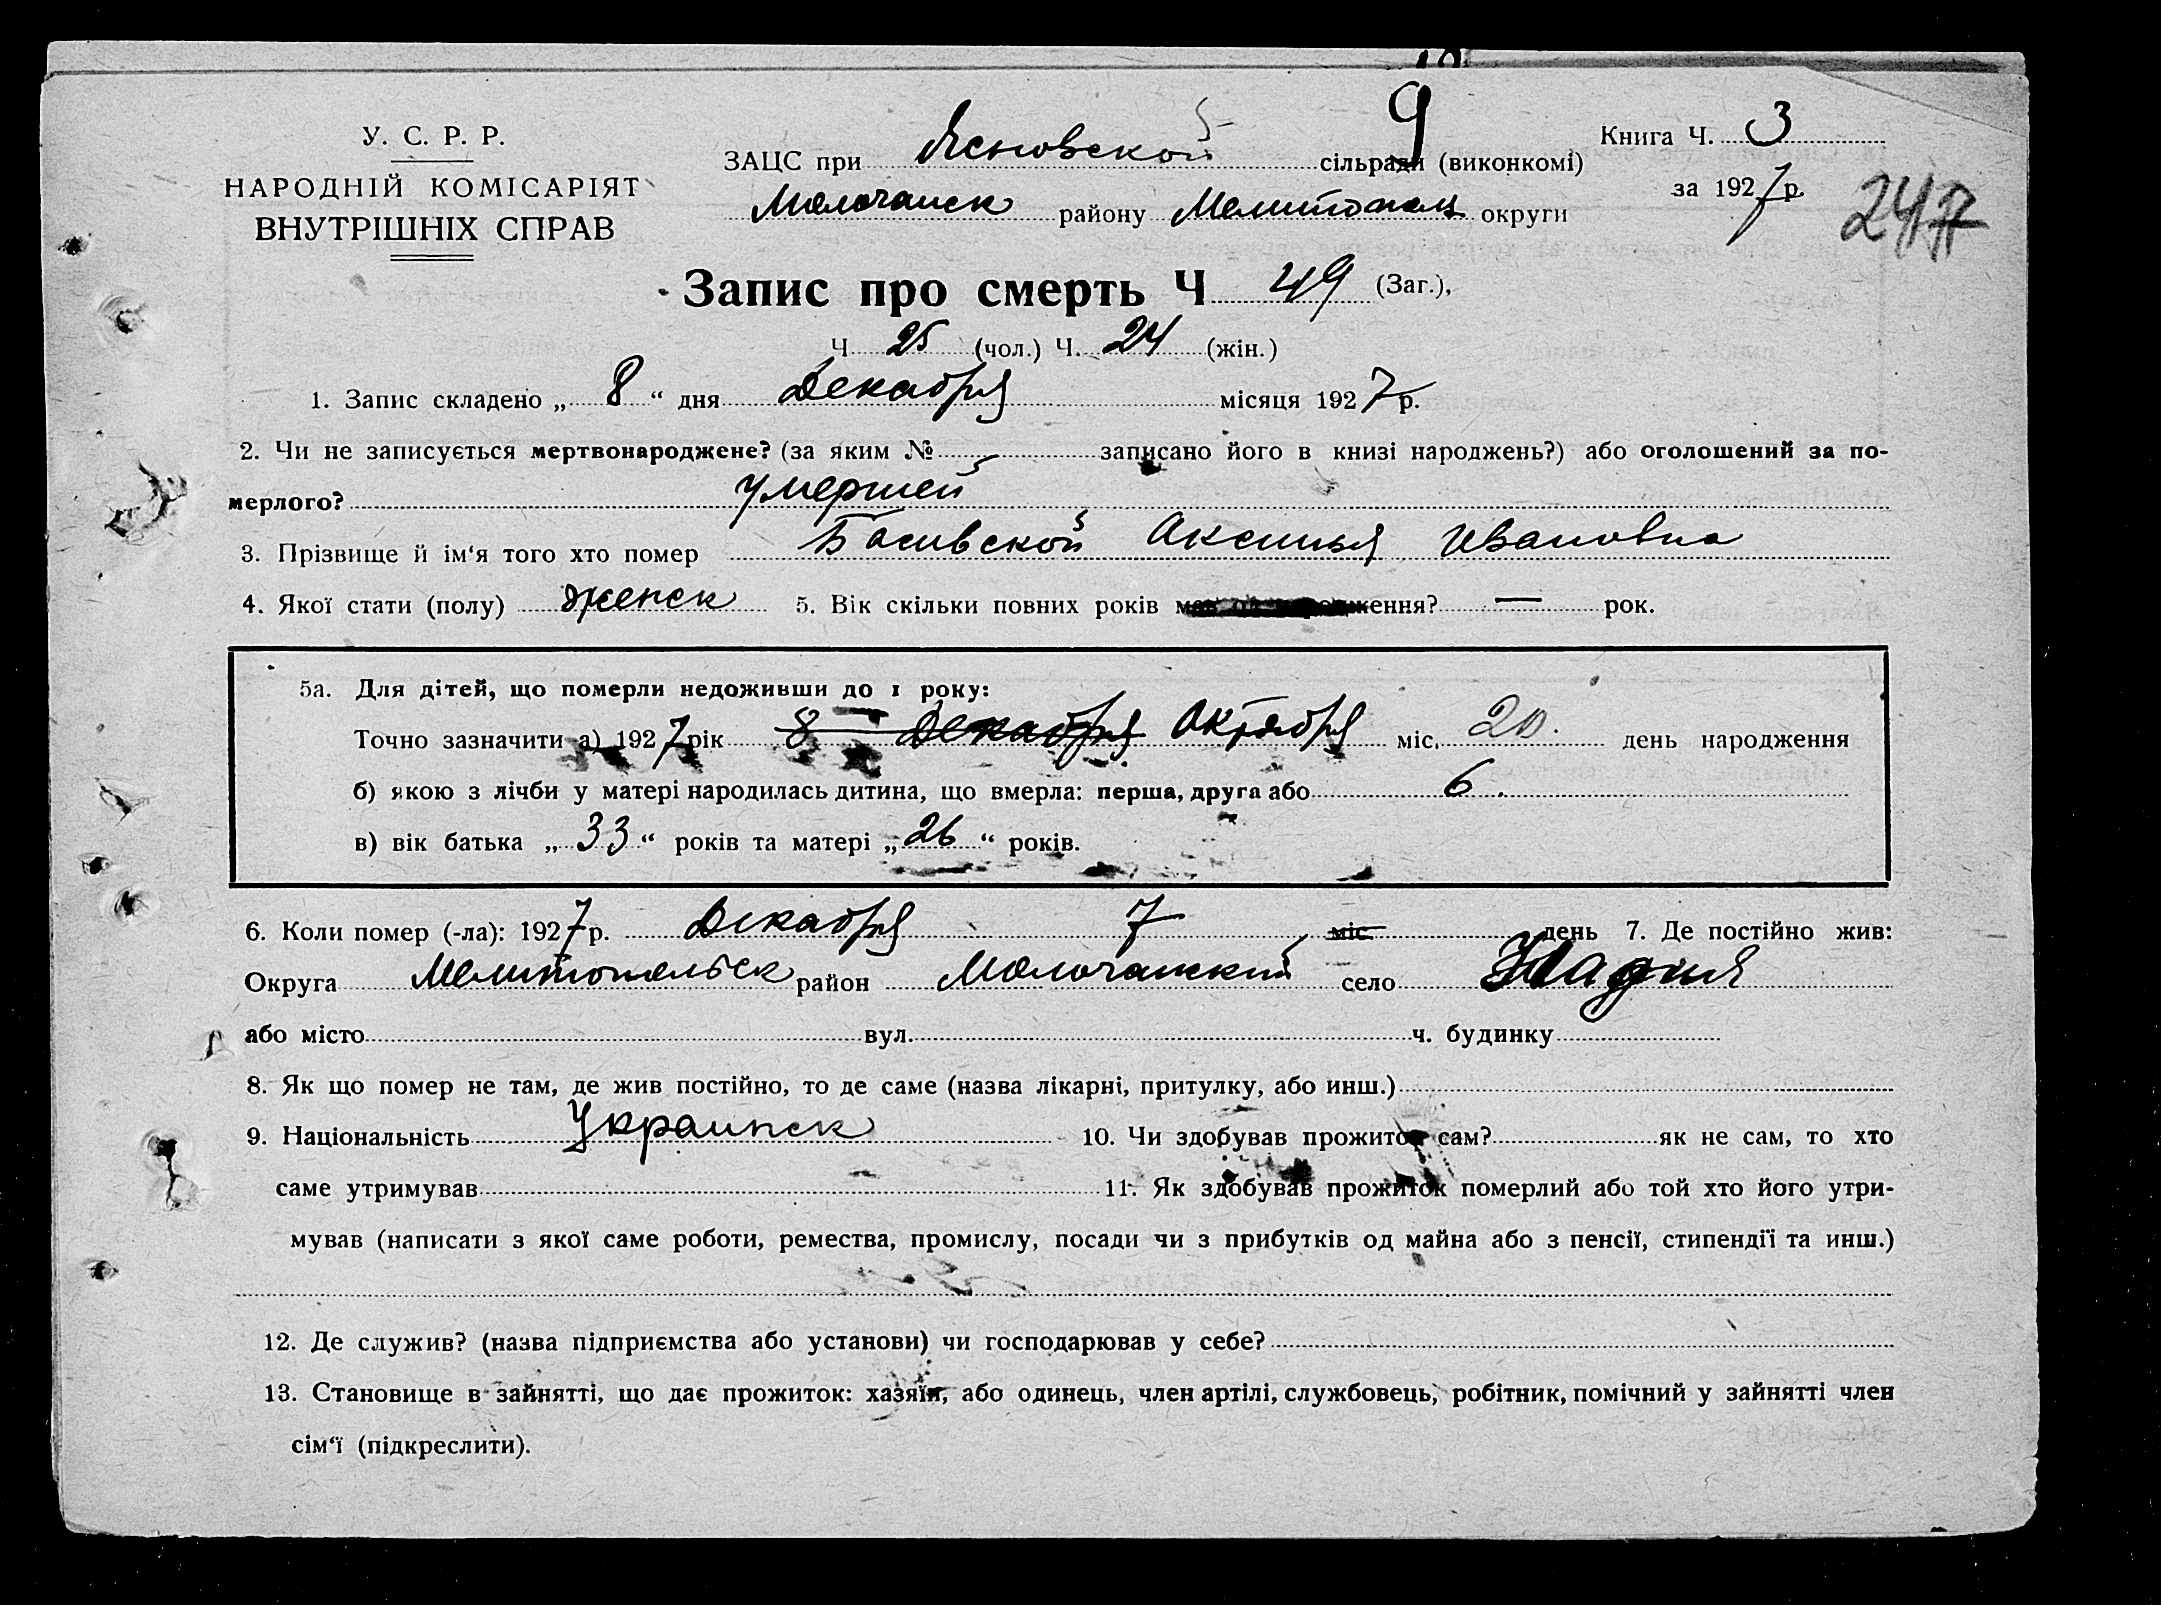 У. С. Р. Р.
НАРОДНІЙ КОМІСАРІЯТ
ВНУТРІШНІХ СПРАВ
9
ЗАЦС при Ясновской сільради (виконкомі)
Молочанск району Мелитопольск округи
Книга Ч. 3
за 1927 р.
247
Запис про смерть Ч 49 (Заг.),
Ч 25 (чол.) Ч. 24 (жін.)
1. Запис складено „ 8 “ дня Декабря місяця 1927 р.
2. Чи не записується мертвонароджене? (за яким № записано його в книзі народжень?) або оголошений за по-
мерлого? умершей
3. Прізвище й ім'я того хто помер Басивской Аксинья Ивановна
4. Якої стати (полу) женск 5. Вік скільки повних років ження? — рок.
5а. Для дітей, що померли недоживши до 1 року:
Точно зазначити а) 1927 рік 8 Декабря Октября міс. 20. день народження
б) якою з лічби у матері народилась дитина, що вмерла: перша, друга або 6.
в) вік батька „ 33 “ років та матері „ 26 “ років.
6. Коли помер (-ла): 1927 р. Декабря 7 міс день 7. Де постійно жив:
Округа Мелитопольск район Молочанский село Надия
або місто вул. ч. будинку
8. Як що помер не там, де жив постійно, то де саме (назва лікарні, притулку, або инш.)
9. Національність Украинск 10. Чи здобував прожиток сам? як не сам, то хто
саме утримував 11. Як здобував прожиток померлий або той хто його утри-
мував (написати з якої саме роботи, ремества, промислу, посади чи з прибутків од майна або з пенсії, стипендії та инш.)
12. Де служив? (назва підприємства або установи) чи господарював у себе?
13. Становище в зайнятті, що дає прожиток: хазяїн, або одинець, член артілі, службовець, робітник, помічний у зайнятті член
сім'ї (підкреслити).